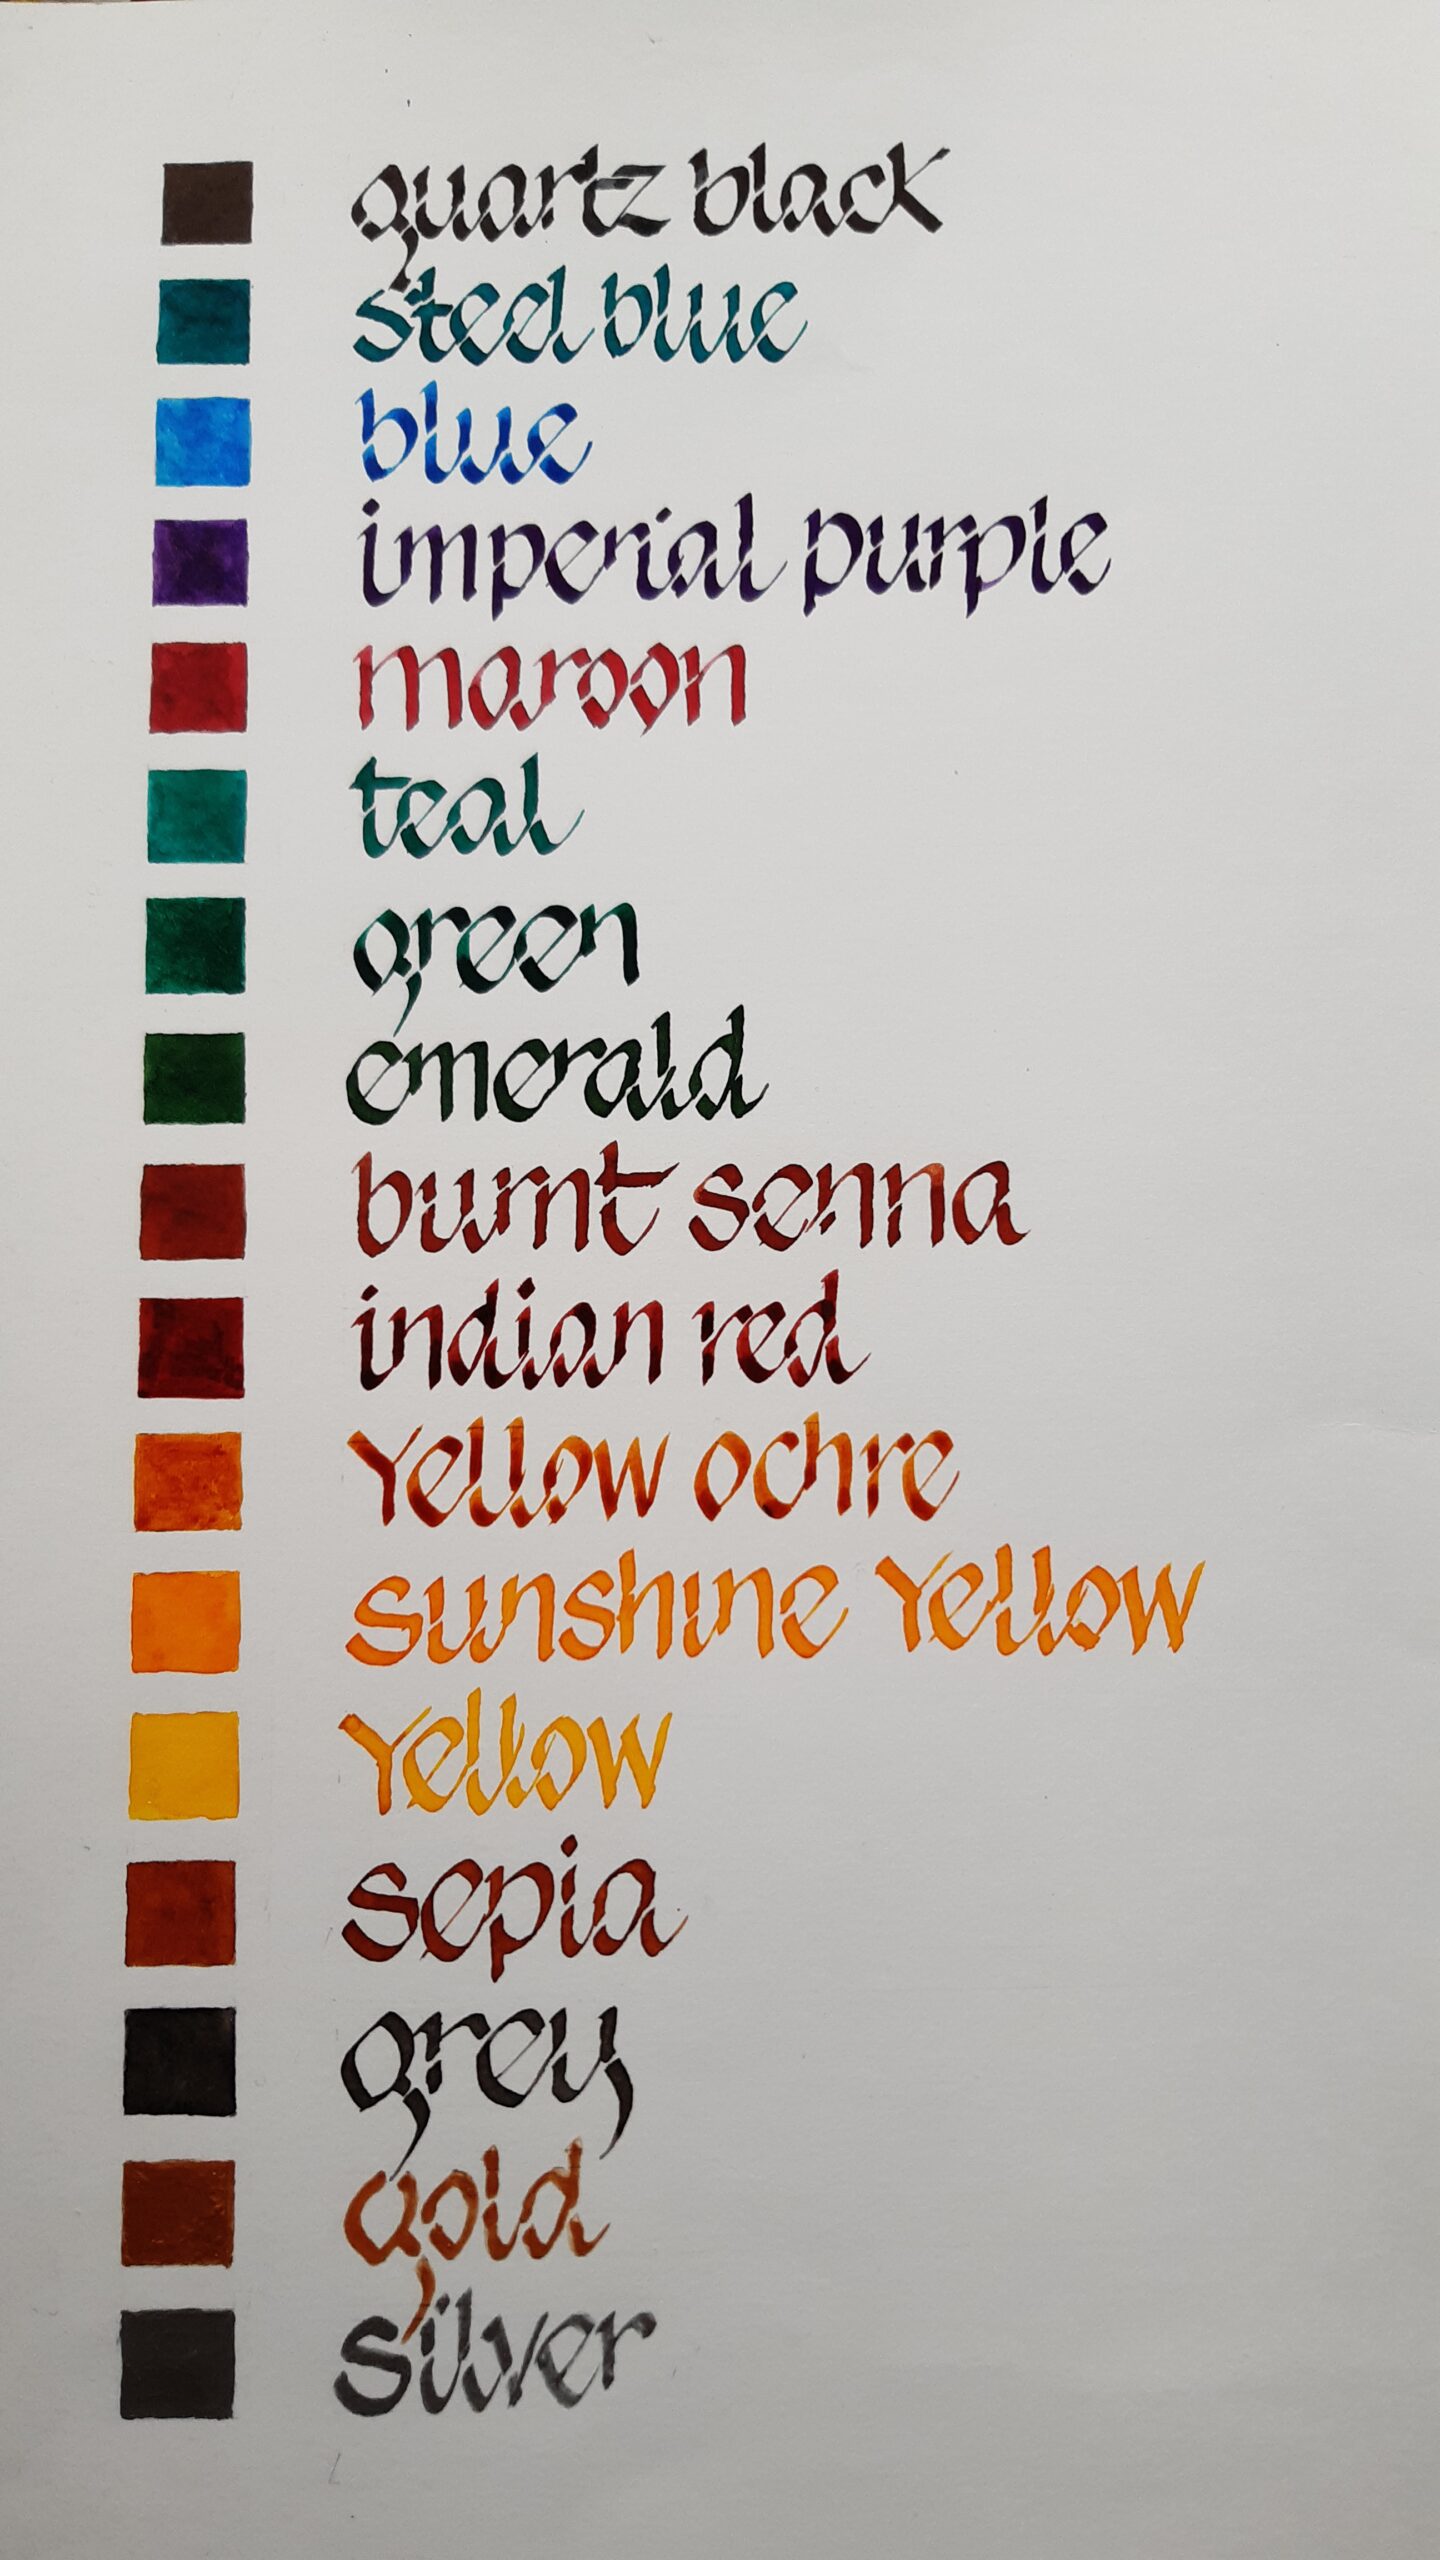 quartz black
steel blue
blue
imperial purple
maroon
teal
green
emerald
burnt senna
indian red
Yellow ochre
sunshine Yellow
Yellow
sepia
grey
gold
silver